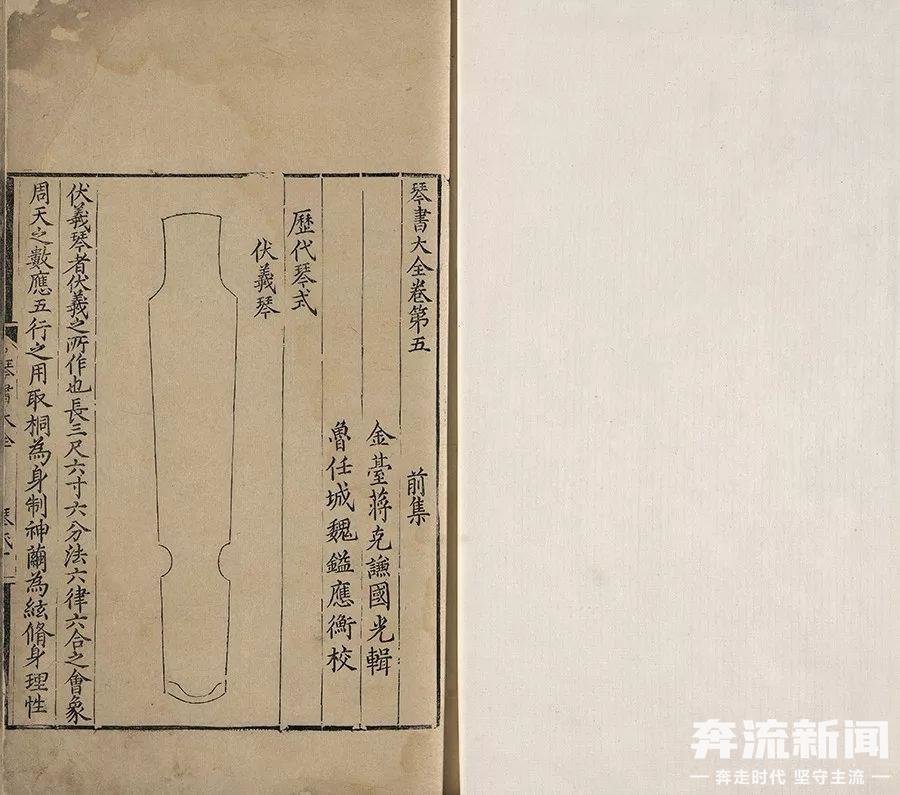 琴書大全卷第五
前集
金臺蔣克謙國光輯
魯任城魏鎰應衡校
歷代琴式
伏羲琴
伏羲琴者伏羲之所作也長三尺六寸六分法六律六合之會象
周天之數應五行之用取桐為身制神繭為絃脩身理性
琴書大全
琴式
奔流新闻
奔走时代 坚守主流